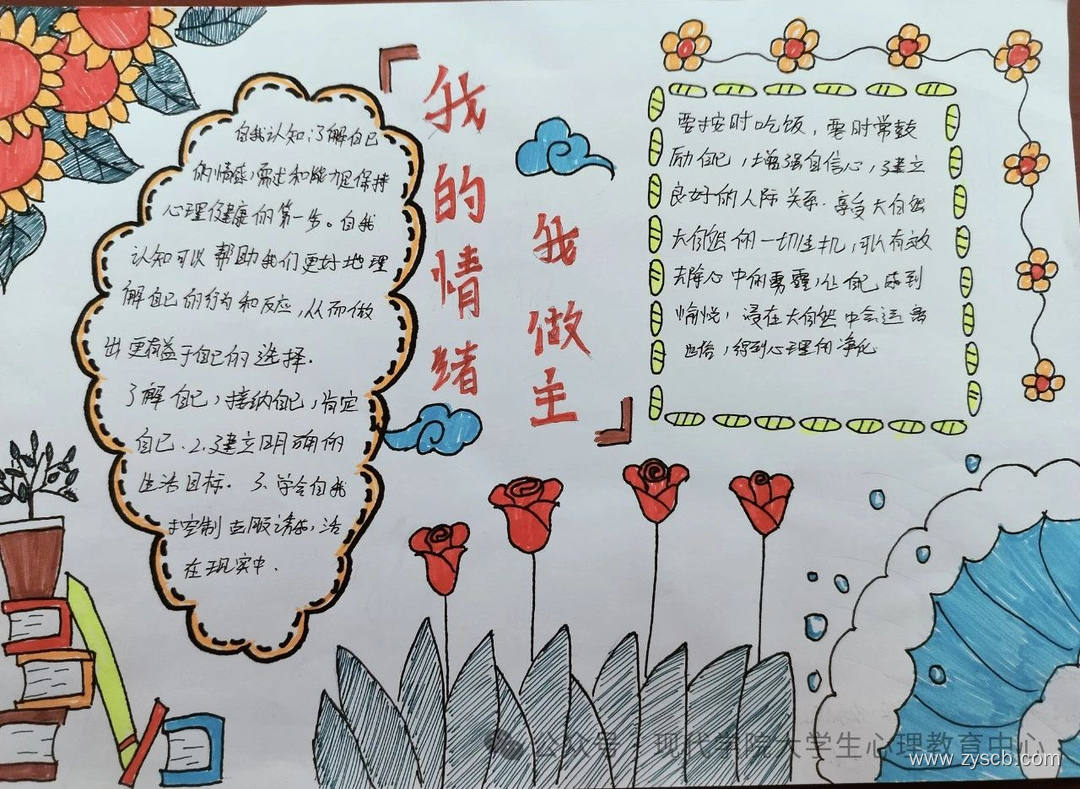 我的情绪
我做主
自我认知:了解自己
的情感,需求和能力是保持
心理健康的第一步。自我
认知可以帮助我们更好地理
解自己的行为和反应,从而做
出更有益于自己的选择.
了解自己,接纳自己,肯定
自己.2.建立明确的
生活目标. 3.学会自我
控制 克服 活
在现实中.
要按时吃饭,要时常鼓
励自己,增强自信心,建立
良好的人际关系.享受大自然
大自然的一切生机,可以有效
去除心中的雾霾,让自己感到
愉悦,浸在大自然中会
得到心理的净化
公众号·现代学院大学生心理教育中心
www.zyscb.com